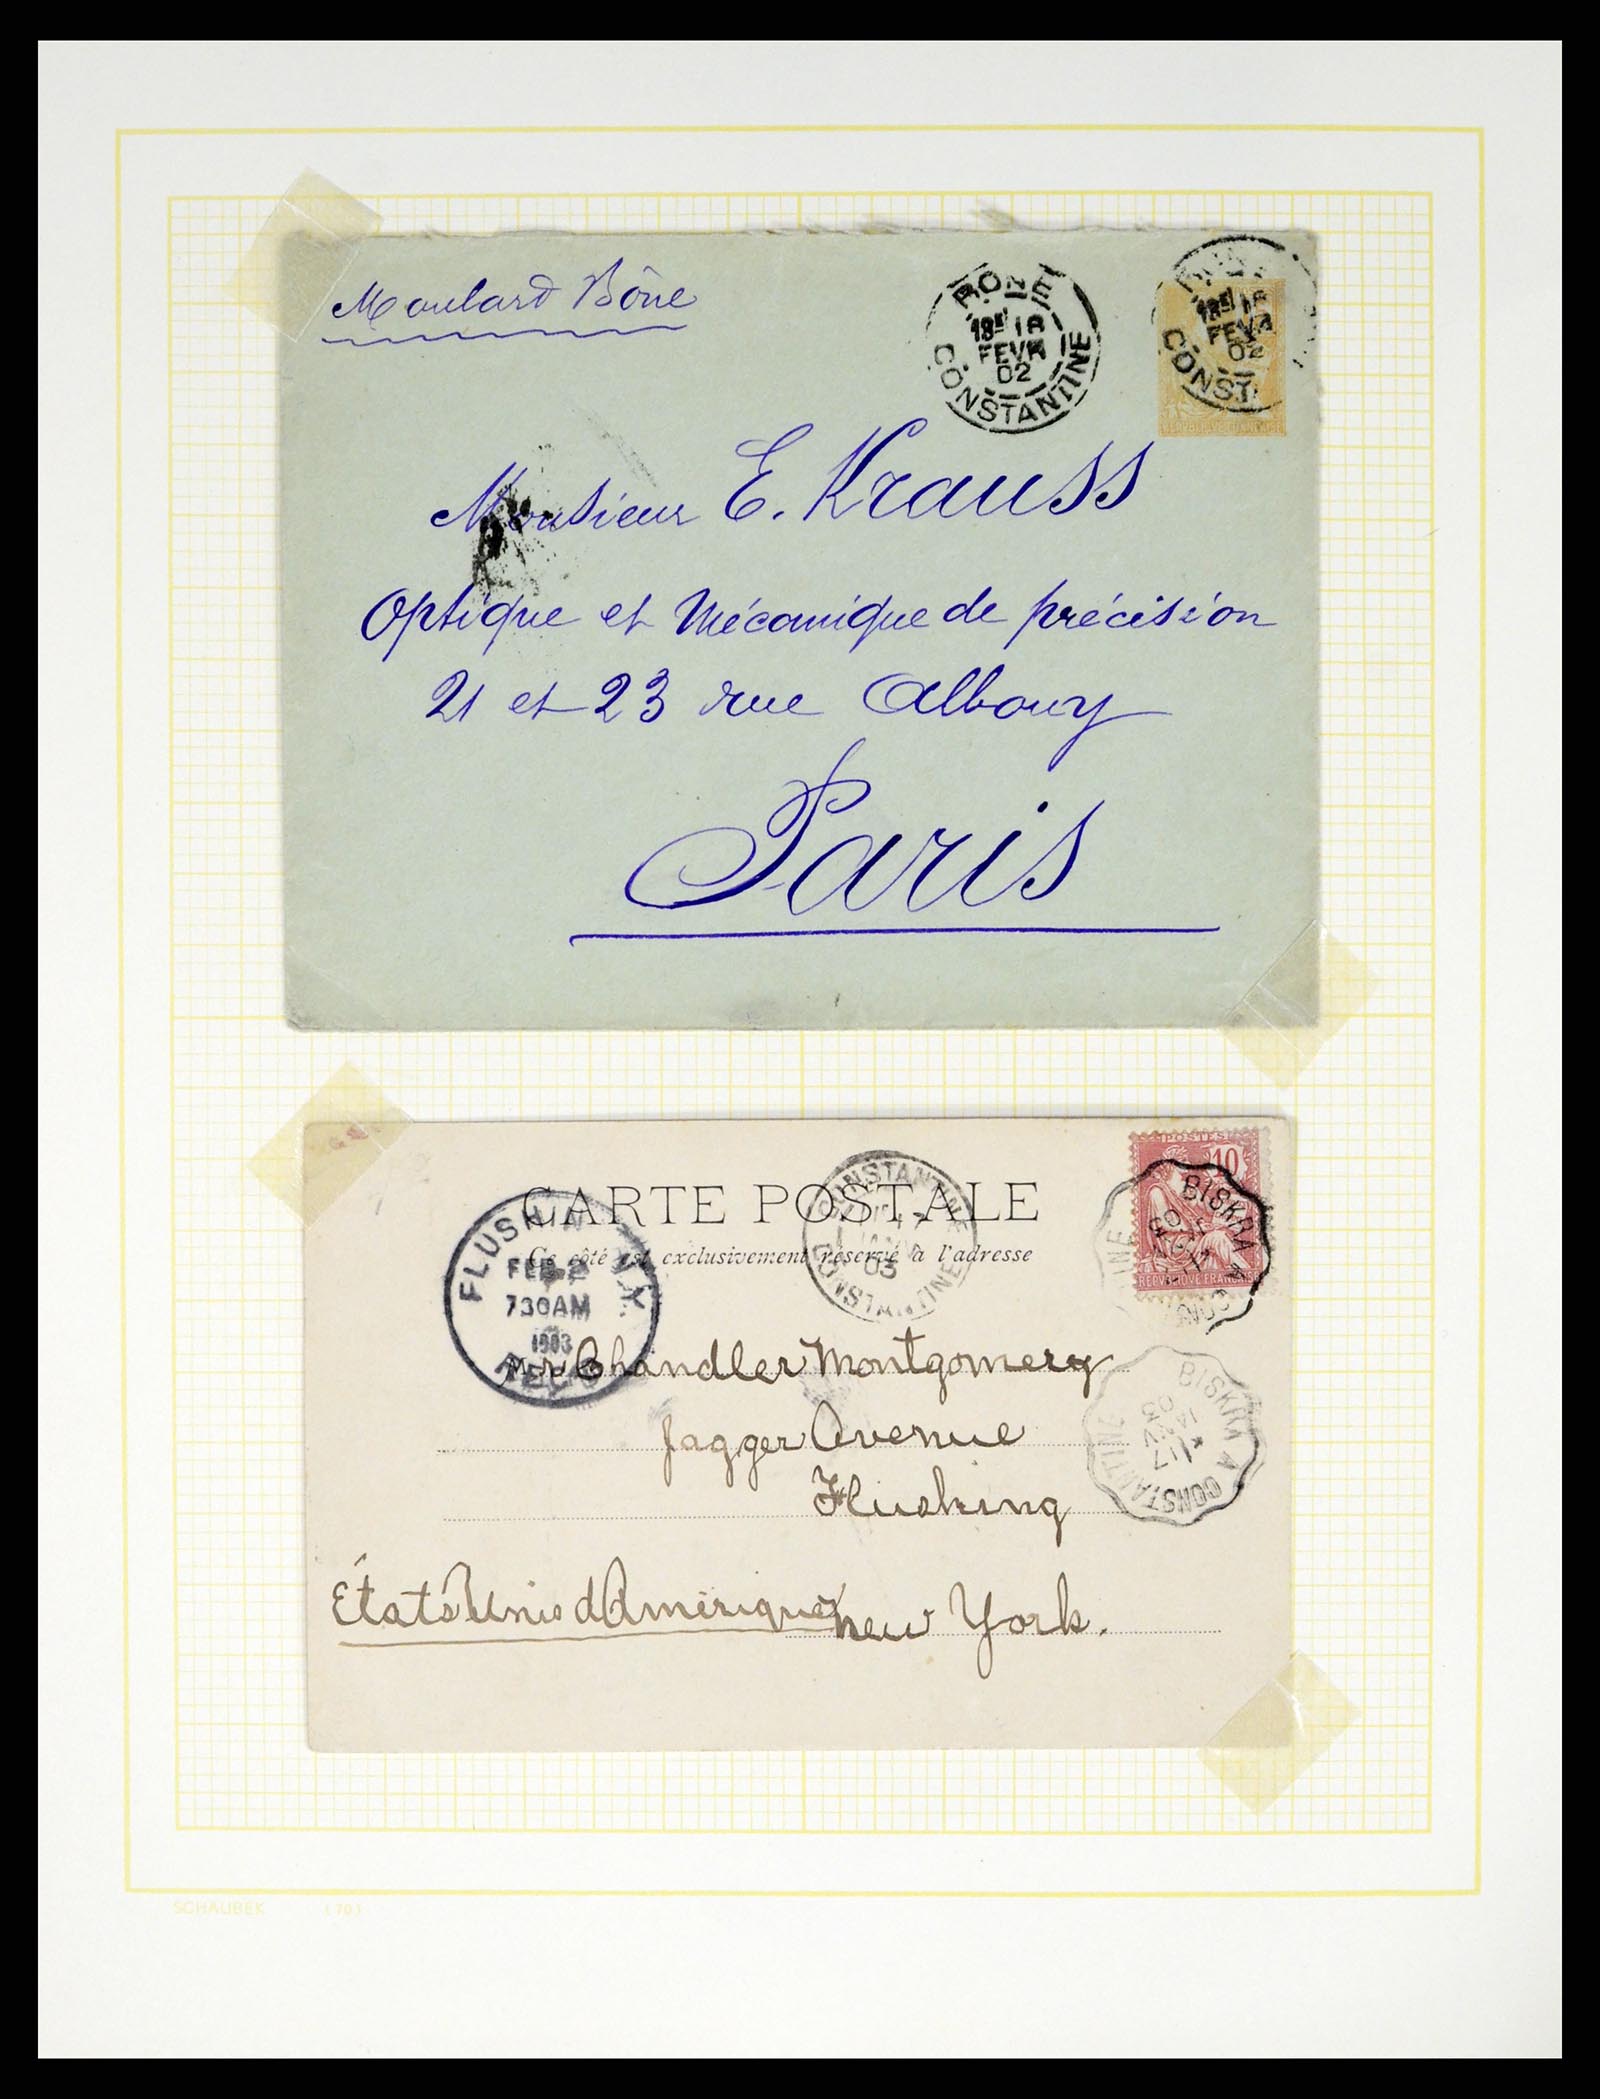 Moulard Bône
BONE
18E 18
FEVR
02
CONSTANTINE
18E 18
FEVR
02
CONST
REPUBLIQUE FRANÇAISE
Monsieur E. Krauss
Optique et Mécanique de précision
21 et 23 rue Albouy
Paris
CARTE POSTALE
Ce côté est exclusivement réservé à l'adresse
CONSTANTINE
03
CONSTANTINE
POSTES
10
REPUBLIQUE FRANÇAISE
BISKRA A
03
FLUSH N.Y.
FEB 2
730AM
1903
REC'D
Mr Chandler Montgomery
Jagger Avenue
Flushing
BISKRA A CONSTANTINE
03
États Unis d'Amérique New York.
SCHAUBEK (70)